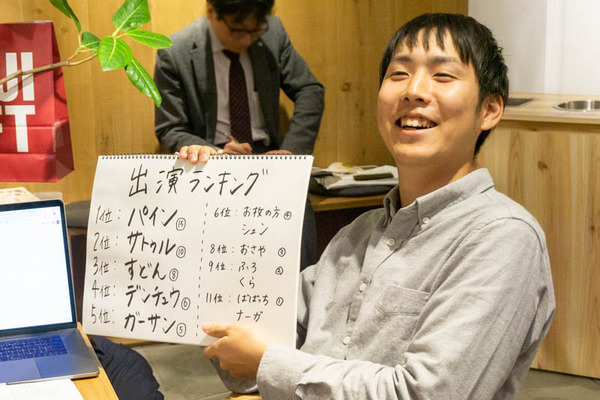 UI
FT
出演ランキング
1位:パイン⑮
2位:サトゥル⑩
3位:すどん⑧
4位:デンチュウ⑥
5位:ガーサン⑤
6位:お枚の方④
シュン
8位:おさや③
9位:ふろ②
くら
11位:ばばち①
ナーガ